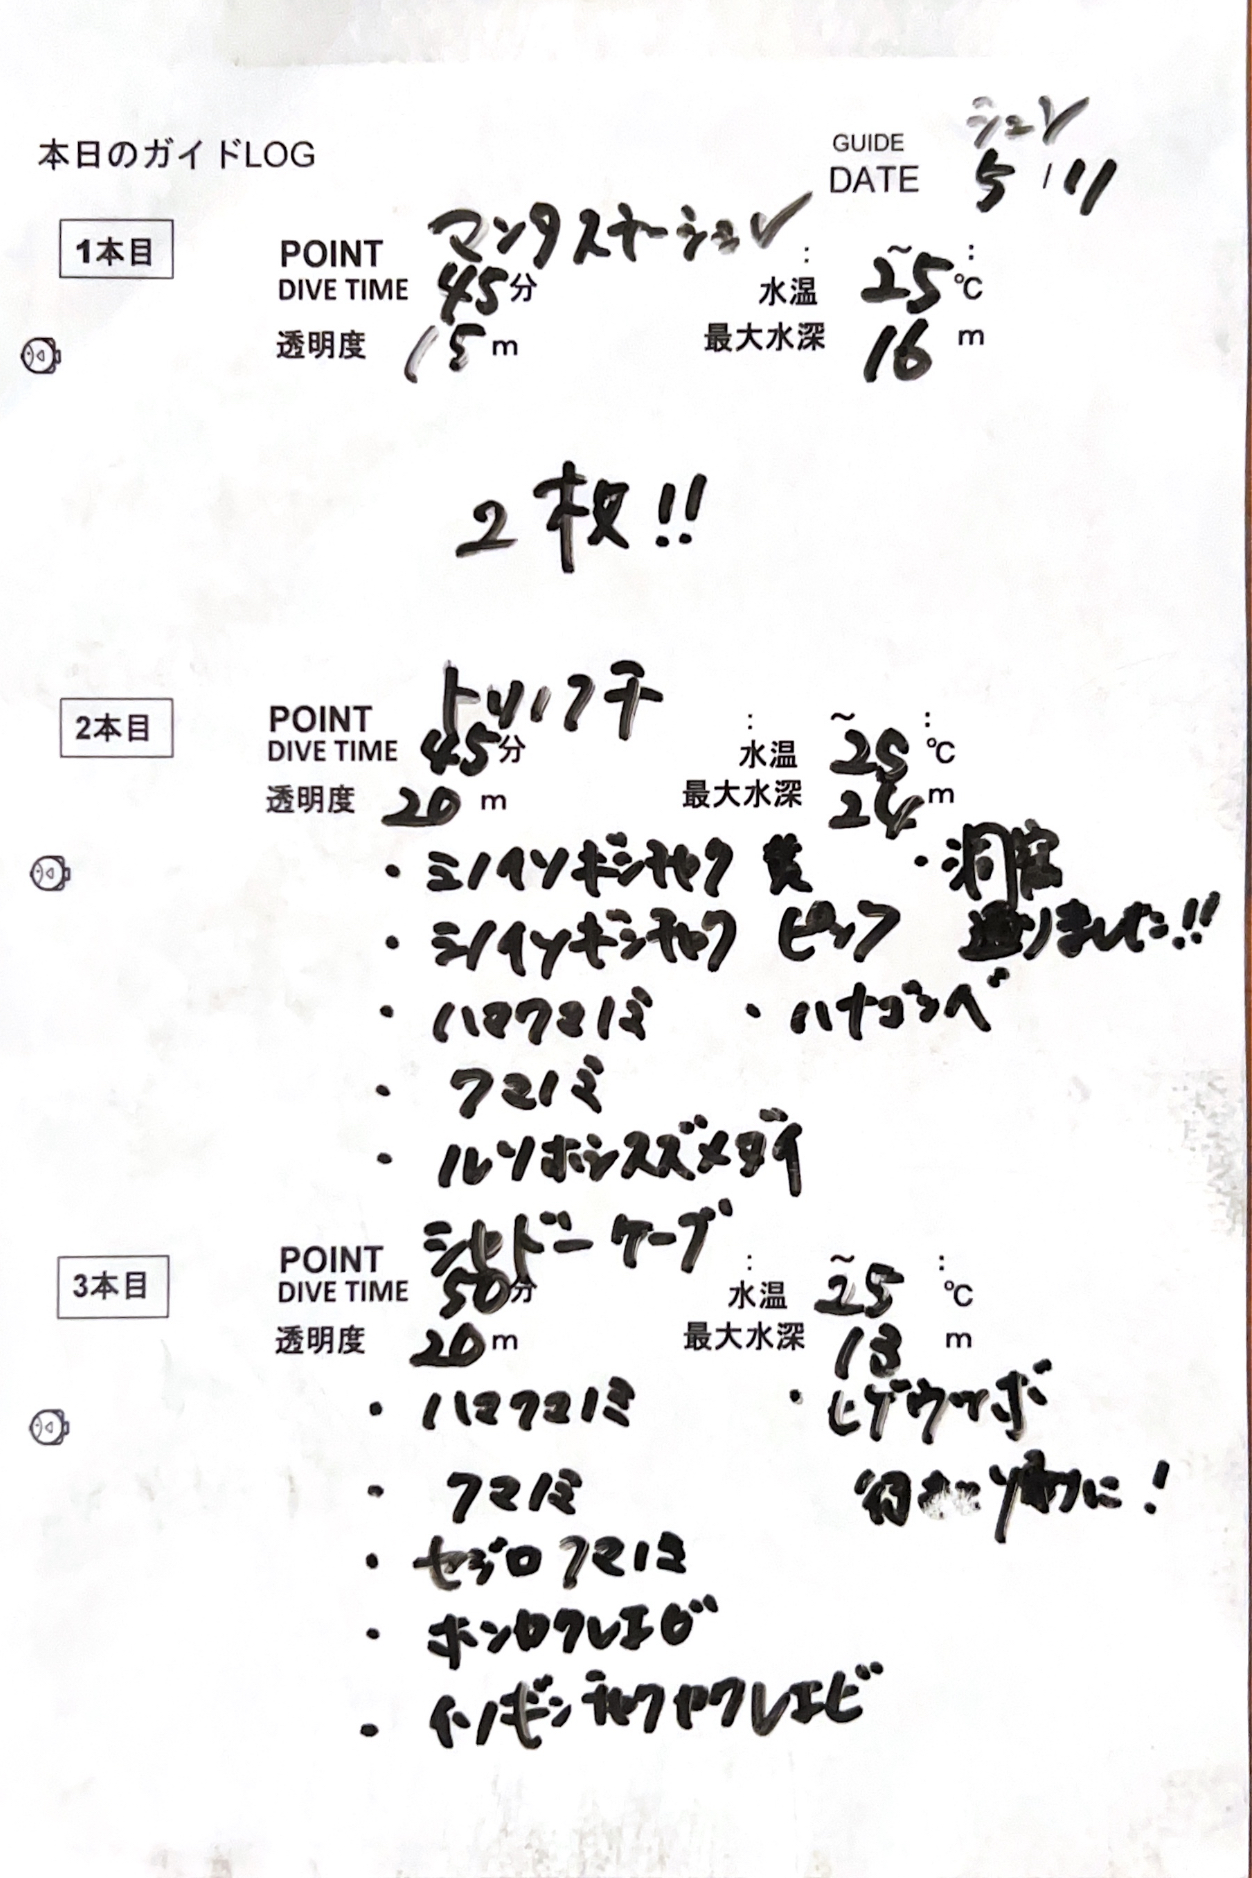 本日のガイドLOG
GUIDE シュン
DATE 5/11
1本目
POINT マンタステーション : ~ :
DIVE TIME 45分 水温 25℃
透明度 15m 最大水深 16m
2枚!!
2本目
POINT トリノフチ : ~ :
DIVE TIME 45分 水温 25℃
透明度 20m 最大水深 24m
・ミノイソギンチャク 黄 ・洞窟
・ミノイソギンチャク ピンク 通りました!!
・ハマクマノミ ・ハナゴンベ
・クマノミ
・ルソンホシスズメダイ
3本目
POINT シャドーケーブ : ~ :
DIVE TIME 50分 水温 25℃
透明度 20m 最大水深 13m
・ハマクマノミ ・ヒゲウツボ
・クマノミ に!
・セジロクマノミ
・ホンカクレエビ
・イソギンチャクカクレエビ